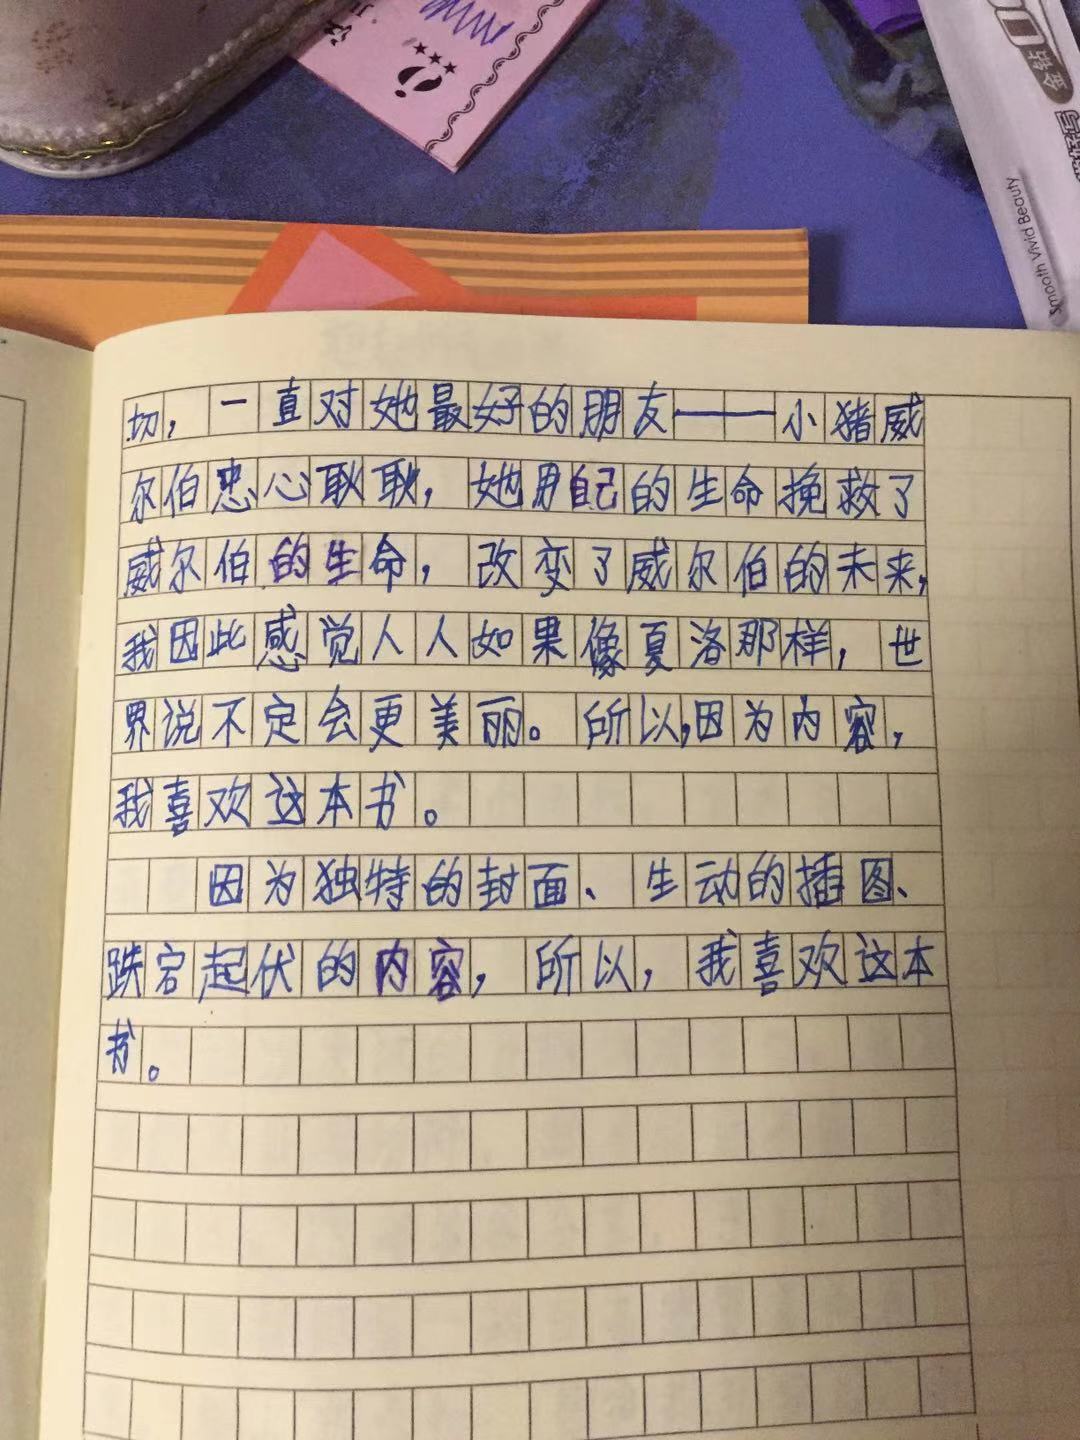 金装
Smooth Vivid Beauty
切，一直对她最好的朋友——小猪威
尔伯忠心耿耿，她用自己的生命挽救了
威尔伯的生命，改变了威尔伯的未来，
我因此感觉人人如果像夏洛那样，世
界说不定会更美丽。所以，因为内容，
我喜欢这本书。
因为独特的封面、生动的插图、
跌宕起伏的内容，所以，我喜欢这本
书。